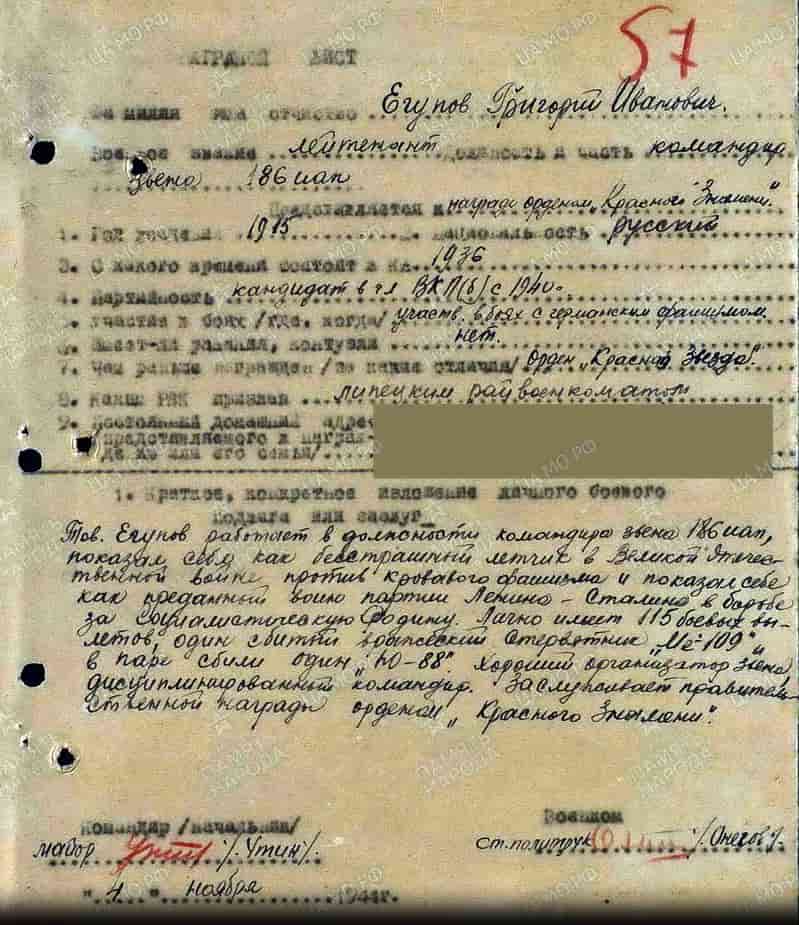 57
НАГРАДНОЙ ЛИСТ
Фамилия имя отчество Егупов Григорий Иванович.
Военное звание лейтенант должность и часть командир
звена 186 иап
Представляется к награде орденом „Красного Знамени".
1. Год рождения 1915 национальность русский
3. С какого времени состоит в КА 1936
4. Партийность кандидат в чл ВКП(б) с 1940.
5. Участие в боях /где, когда/ участв. в боях с германским фашизмом.
6. Имеет-ли ранения, контузии нет.
7. Чем раньше награжден /за какие отличия/ Орден „Красной Звезда".
8. Каким РВК призван липецким райвоенкоматом
9. Постоянный домашний адрес
представляемого к награ-
де или его семьи/
1. Краткое, конкретное изложение личного боевого
подвига или заслуг
Тов. Егупов работает в должности командира звена 186 иап,
показал себя как бесстрашный летчик в Великой Отечес-
твенной войне против кровавого фашизма и показал себя
как преданный воин партии Ленина - Сталина в борьбе
за социалистическую Родину. Лично имеет 115 боевых вы-
летов, один сбитый вражеский стервятник „Ме-109",
в паре сбили один „Ю-88". Хороший организатор звена,
дисциплинированный командир. Заслуживает правител-
ственной награды орденом „Красного Знамени".
Командир /начальник/ Военком
майор /Утин/. ст. политрук /Онегов/.
" 4 " ноября 1941г.
ЦАМО.РФ
ПАМЯТЬ НАРОДА